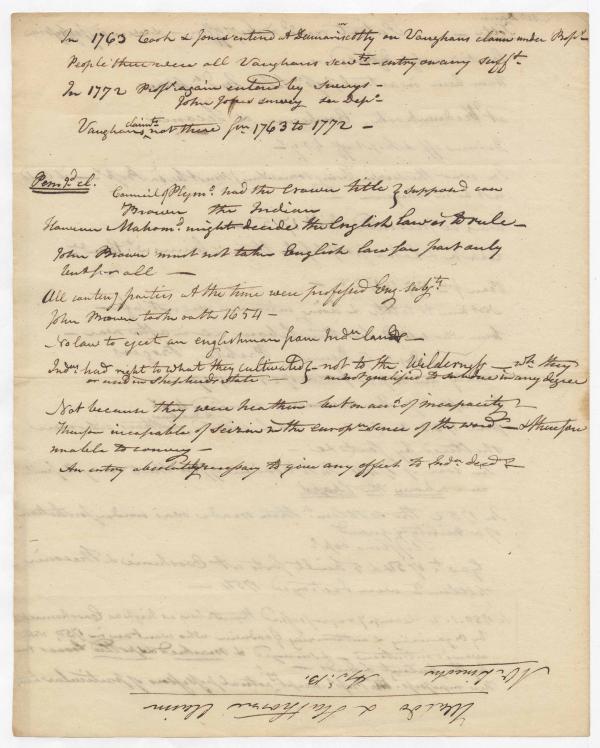 In 1763 Cook & Jones entered at Damariscotty on Vaughans claim under Prop.rs
People there were all Vaughans - entry on any
In 1772 Prop.rs again entered by Surveys -
John Jones survey see Dep.n
Vaughans claimts not there for 1763 to 1772 -
Pem.qd cl.
Council of Plym.o had the Crown title & supposed con
Brown the Indian
However Mahom.d might decide the English law is to rule -
John Brown must not take English law for part only
but for all -
All contg parties at the time were professed Eng. Subj.ts
John Brown took oath 1654 -
No law to eject an englishman from Indn lands -
Inds had right to what they cultivated & - not to the Wilderness - wh. they
or used in Shepherds State - are not qualified to subdue in any degree
Not because they were heathen but on acct of incapacity -
Therefore incapable of seizin in the europn sence of the word - & therefore
unable to convey -
An entry absolutely necessary to give any effect to Indn deeds
No.
Waldo & Hathorns Claim